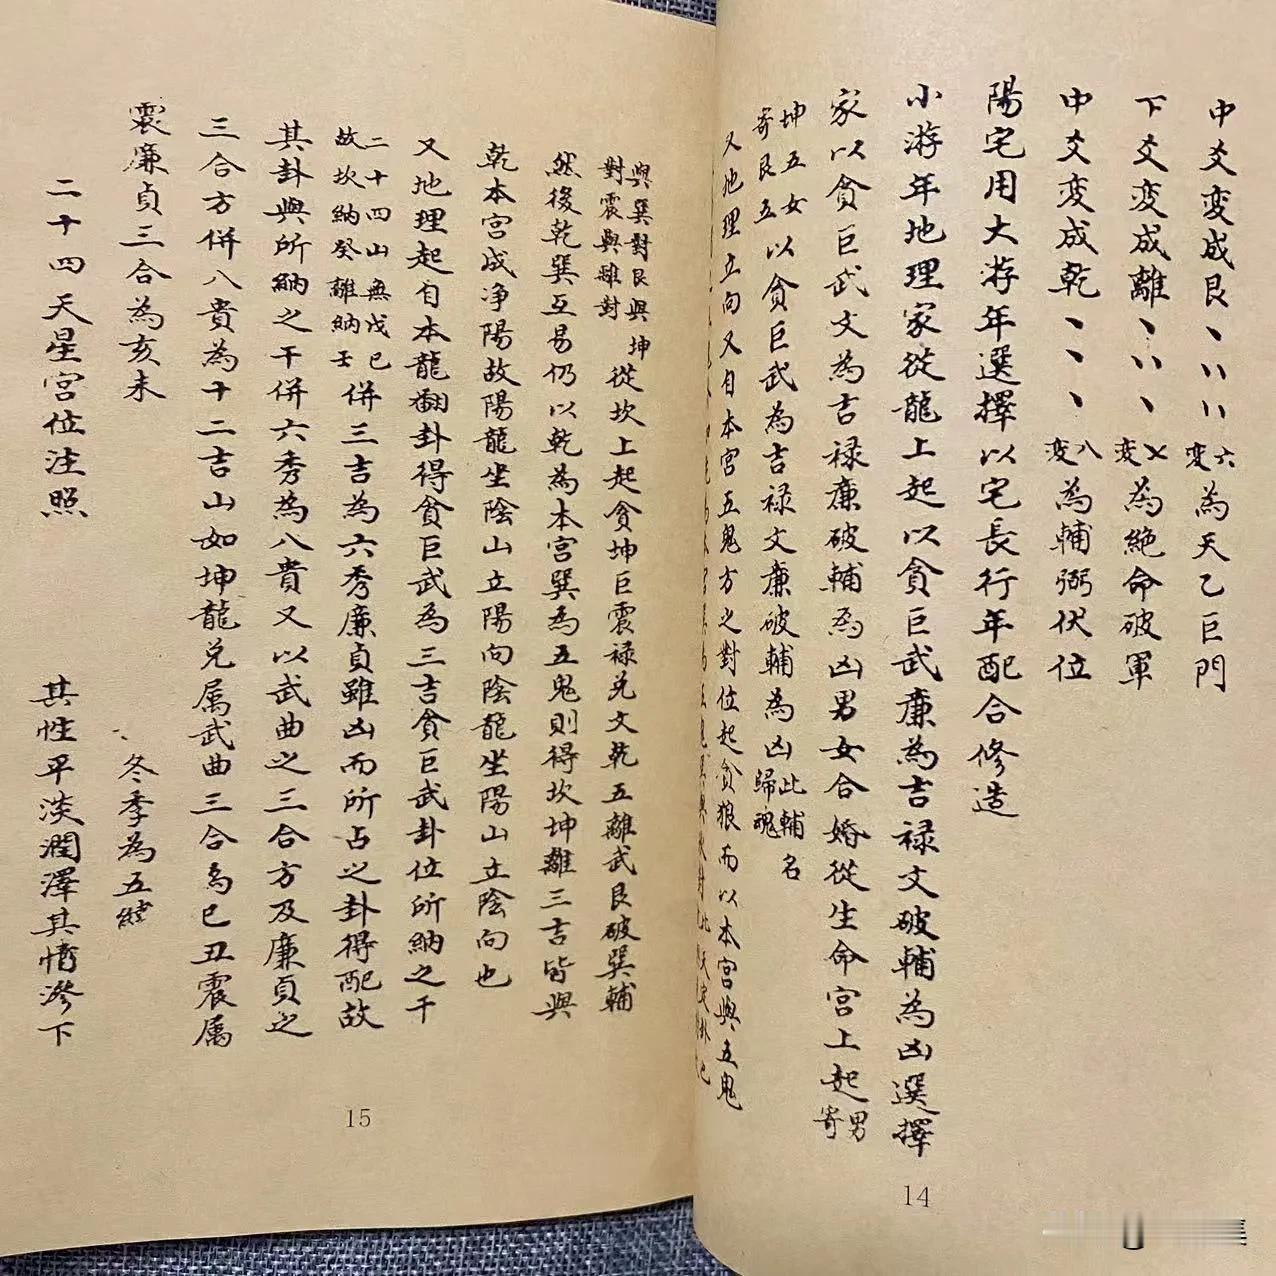 中爻変成艮丶丷丷六変為天乙巨門
下爻変成離丶丷丶七変為絶命破軍
中爻変成乾丶丶丶八変為輔弼伏位
陽宅用大游年選擇以宅長行年配合修造
小游年地理家從龍上起以貪巨武廉為吉禄文破輔為凶選擇
家以貪巨武文為吉禄廉破輔為凶男女合婚從生命宮上起男寄
坤五女寄艮五以貪巨武為吉禄文廉破輔為凶此輔名歸魂
又地理立向又自本宮五鬼方之對位起貪狼而以本宮與五鬼
與巽對艮與坤對震與離對從坎上起貪坤巨震禄兑文乾五離武艮破巽輔
然後乾巽互易仍以乾為本宮巽為五鬼則得坎坤離三吉皆與
乾本宮成净陽故陽龍坐陰山立陽向陰龍坐陽山立陰向也
又地理起自本龍翻卦得貪巨武為三吉貪巨武卦位所納之干
二十四山無戊己故坎納癸離納壬併三吉為六秀廉貞雖凶而所占之卦得配故
其卦與所納之干併六秀為八貴又以武曲之三合方及廉貞之
三合方併八貴為十二吉山如坤龍兑属武曲三合為巳丑震属
震廉貞三合為亥未
冬季為五
二十四天星宮位注照
其性平淡潤澤其情滲下
15
14